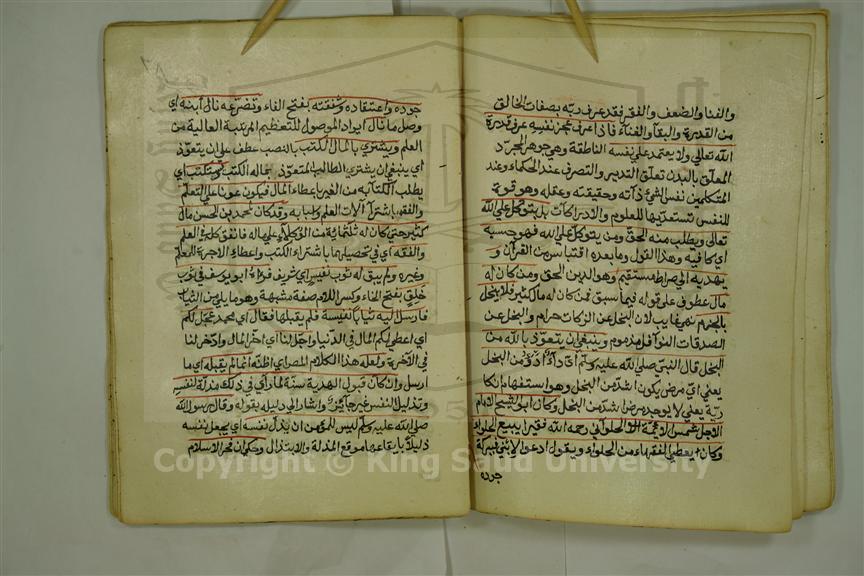 والفناء والضعف والفقر فقد عرف ربه بصفات الخالق
من القدرة والبقاء والغناء فاذا عرف عجز نفسه عرف قدرة
الله تعالى ولا يعتمد على نفسه الناطقة وهي جوهر المجرد
المعلق بالبدن تعلق التدبير والتصرف عند الحكماء وعند
المتكلمين نفس الشئ ذاته وحقيقته وعقله وهو قوة
للنفس تستعد بها للعلوم والادراكات بل يتوكل على الله
تعالى ويطلب منه الحق ومن يتوكل على الله فهو حسبه
اي كافيه وهذا القول وما بعده اقتباس من القرآن و
يهديه الى صراط مستقيم وهو الدين الحق ومن كان له
مال عطوف على قوله فيما سبق فمن كان له مال كثير فلا يبخل
بالجزم نهي غايب لان البخل عن الزكات حرام والبخل عن
الصدقات النوافل مذموم وينبغي ان يتعوذ بالله من
البخل قال النبي صلى الله عليه وسلم اي داء ادوء من البخل
يعني اي مرض يكون اشد من البخل وهو استفهام انكا
رية يعني لا يوجد مرض شد من البخل وكان ابو الشيخ الامام
الاجل شمس الائمة الحلواني رحمه الله فقيرا يبيع الحلواء
وكان يعطي الفقهاء من الحلواء ويقول ادعوا لابني فببركة
جوده
جوده واعتقاده وشفقته بفتح الفاء وتضرعه نال ابنه اي
وصل ما نال ايراد الموصول للتعظيم المرتبة العالية من
العلم ويشتري بالمال الكتب بالنصب عطف على ان يتعوذ
اي ينبغي ان يشتري الطالب المتعوذ بماله الكتب ويستكتب اي
يطلب الكتابة من الغير باعطاء المال فيكون عونا على التعلم
والفقه باشتراء آلات العلم واسبابه وقد كان لمحمد بن الحسن مال
كثير حتى كان له ثلثمائة من الوكلاء على ماله فانفق كله في العلم
والفقه اي في تحصيلهما باشتراء الكتب واعطاء الاجرة للمعلم
وغيره ولم يبق له ثوب نفيس اي شريف فرآه ابو يوسف في ثوب
خلق بفتح الخاء وكسر اللام صفة مشبهة وهو ما يلى من الثياب
فارسل اليه ثيابا نفيسة فلم يقبلها فقال اي محمد عجل لكم
اي اعطى لكم المال في الدنيا واجل لنا اي اخر المال وادخر لنا
في الآخرة ولعله هذا الكلام المص اي اظنه انما لم يقبله اي ما
ارسل وان كان قبول الهدية سنة لما رأى في ذلك مذلة لنفسه
وتذليل النفس غير جائز واشار الى دليله بقوله وقال رسول الله
صلى الله عليه وسلم ليس للمؤمن ان يذل نفسه اي يجعل نفسه
ذليلا بايقاعها موقع المذلة والابتذال وحكي ان فخر الاسلام
Copyright © King Saud University